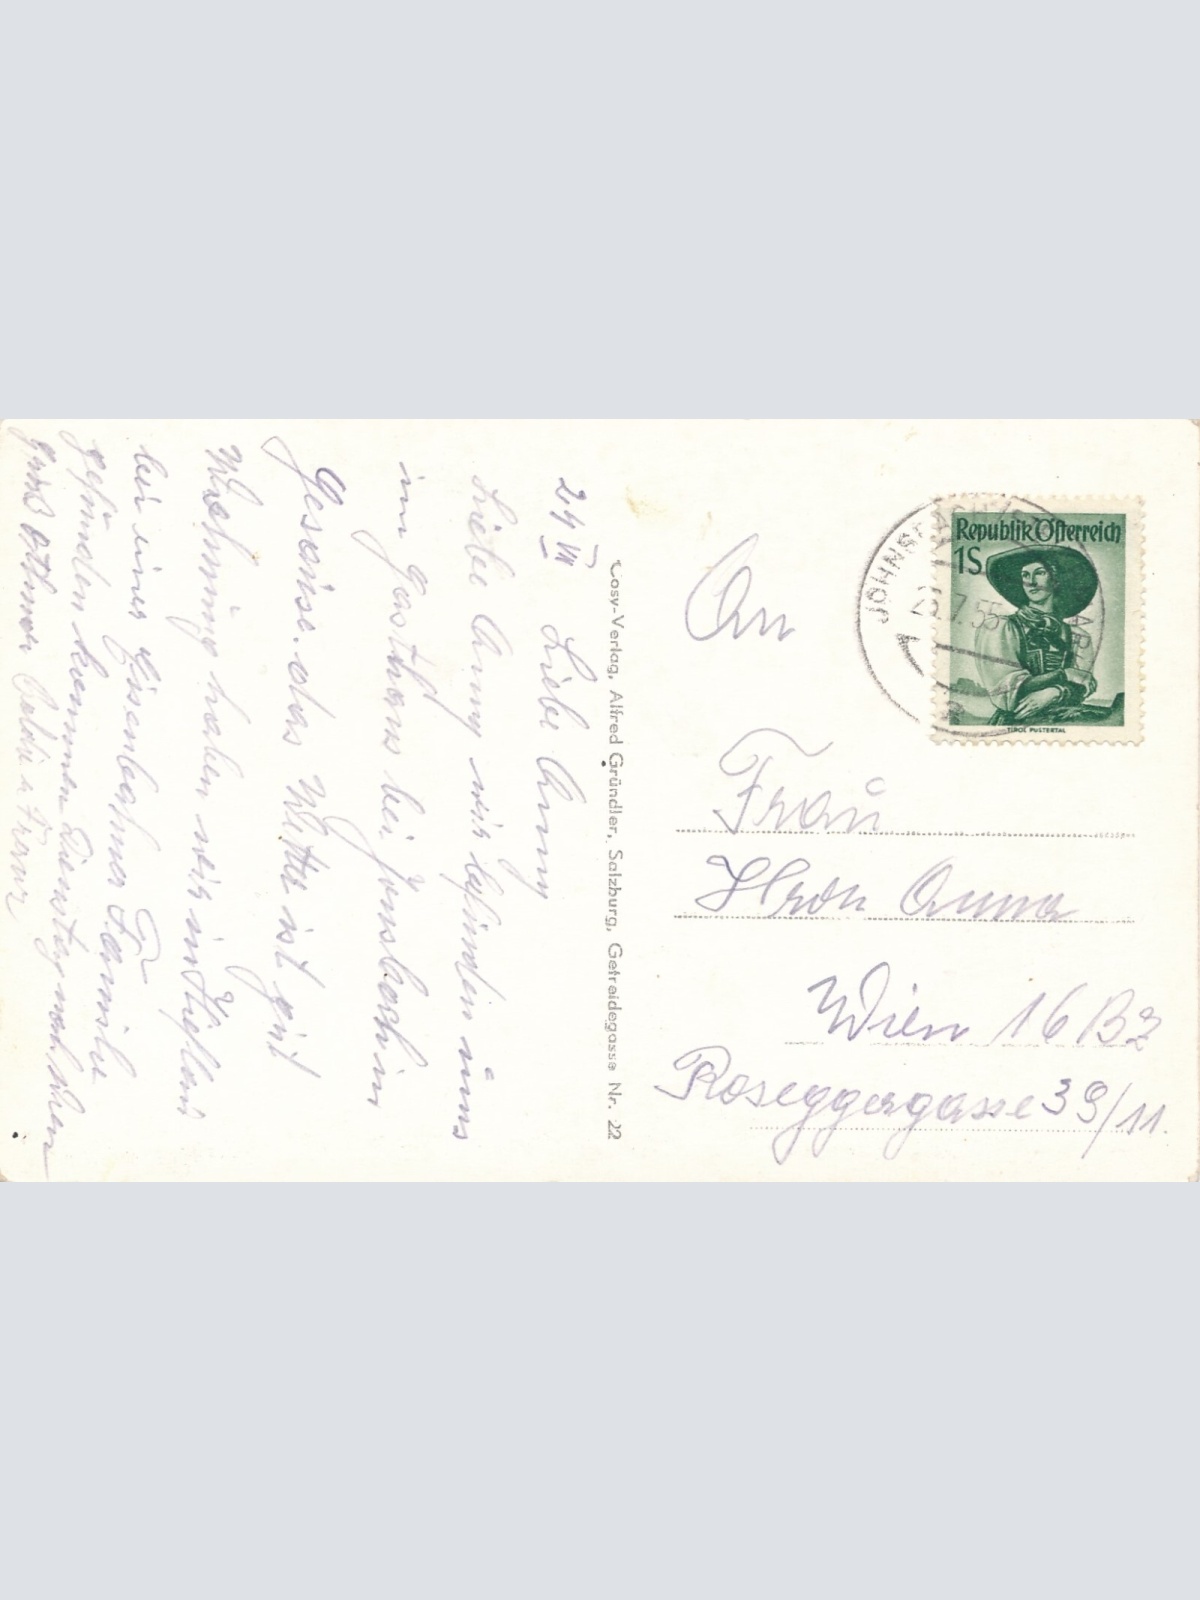 24 VII Liebe Anny
Liebe Anny wir befinden uns
im Gasthaus bei Jonsbach im
Gesäuse. das Wetter ist gut
Wohnung haben wir in Hieflau
bei einer Eisenbahner Familie
gefunden kommen Dienstag nachhen
gruß Othmar Poldi u Franz
Cosy-Verlag, Alfred Gründler, Salzburg, Getreidegasse Nr. 22
An
Frau
Hron Anna
Wien 16 BZ
Roseggergasse 39/11.
Republik Österreich
1S
TIROL PUSTERTAL
7.55